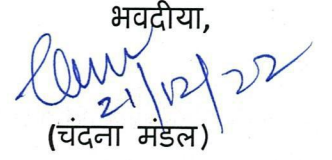 भवदीया,
21/12/22
(चंदना मंडल)